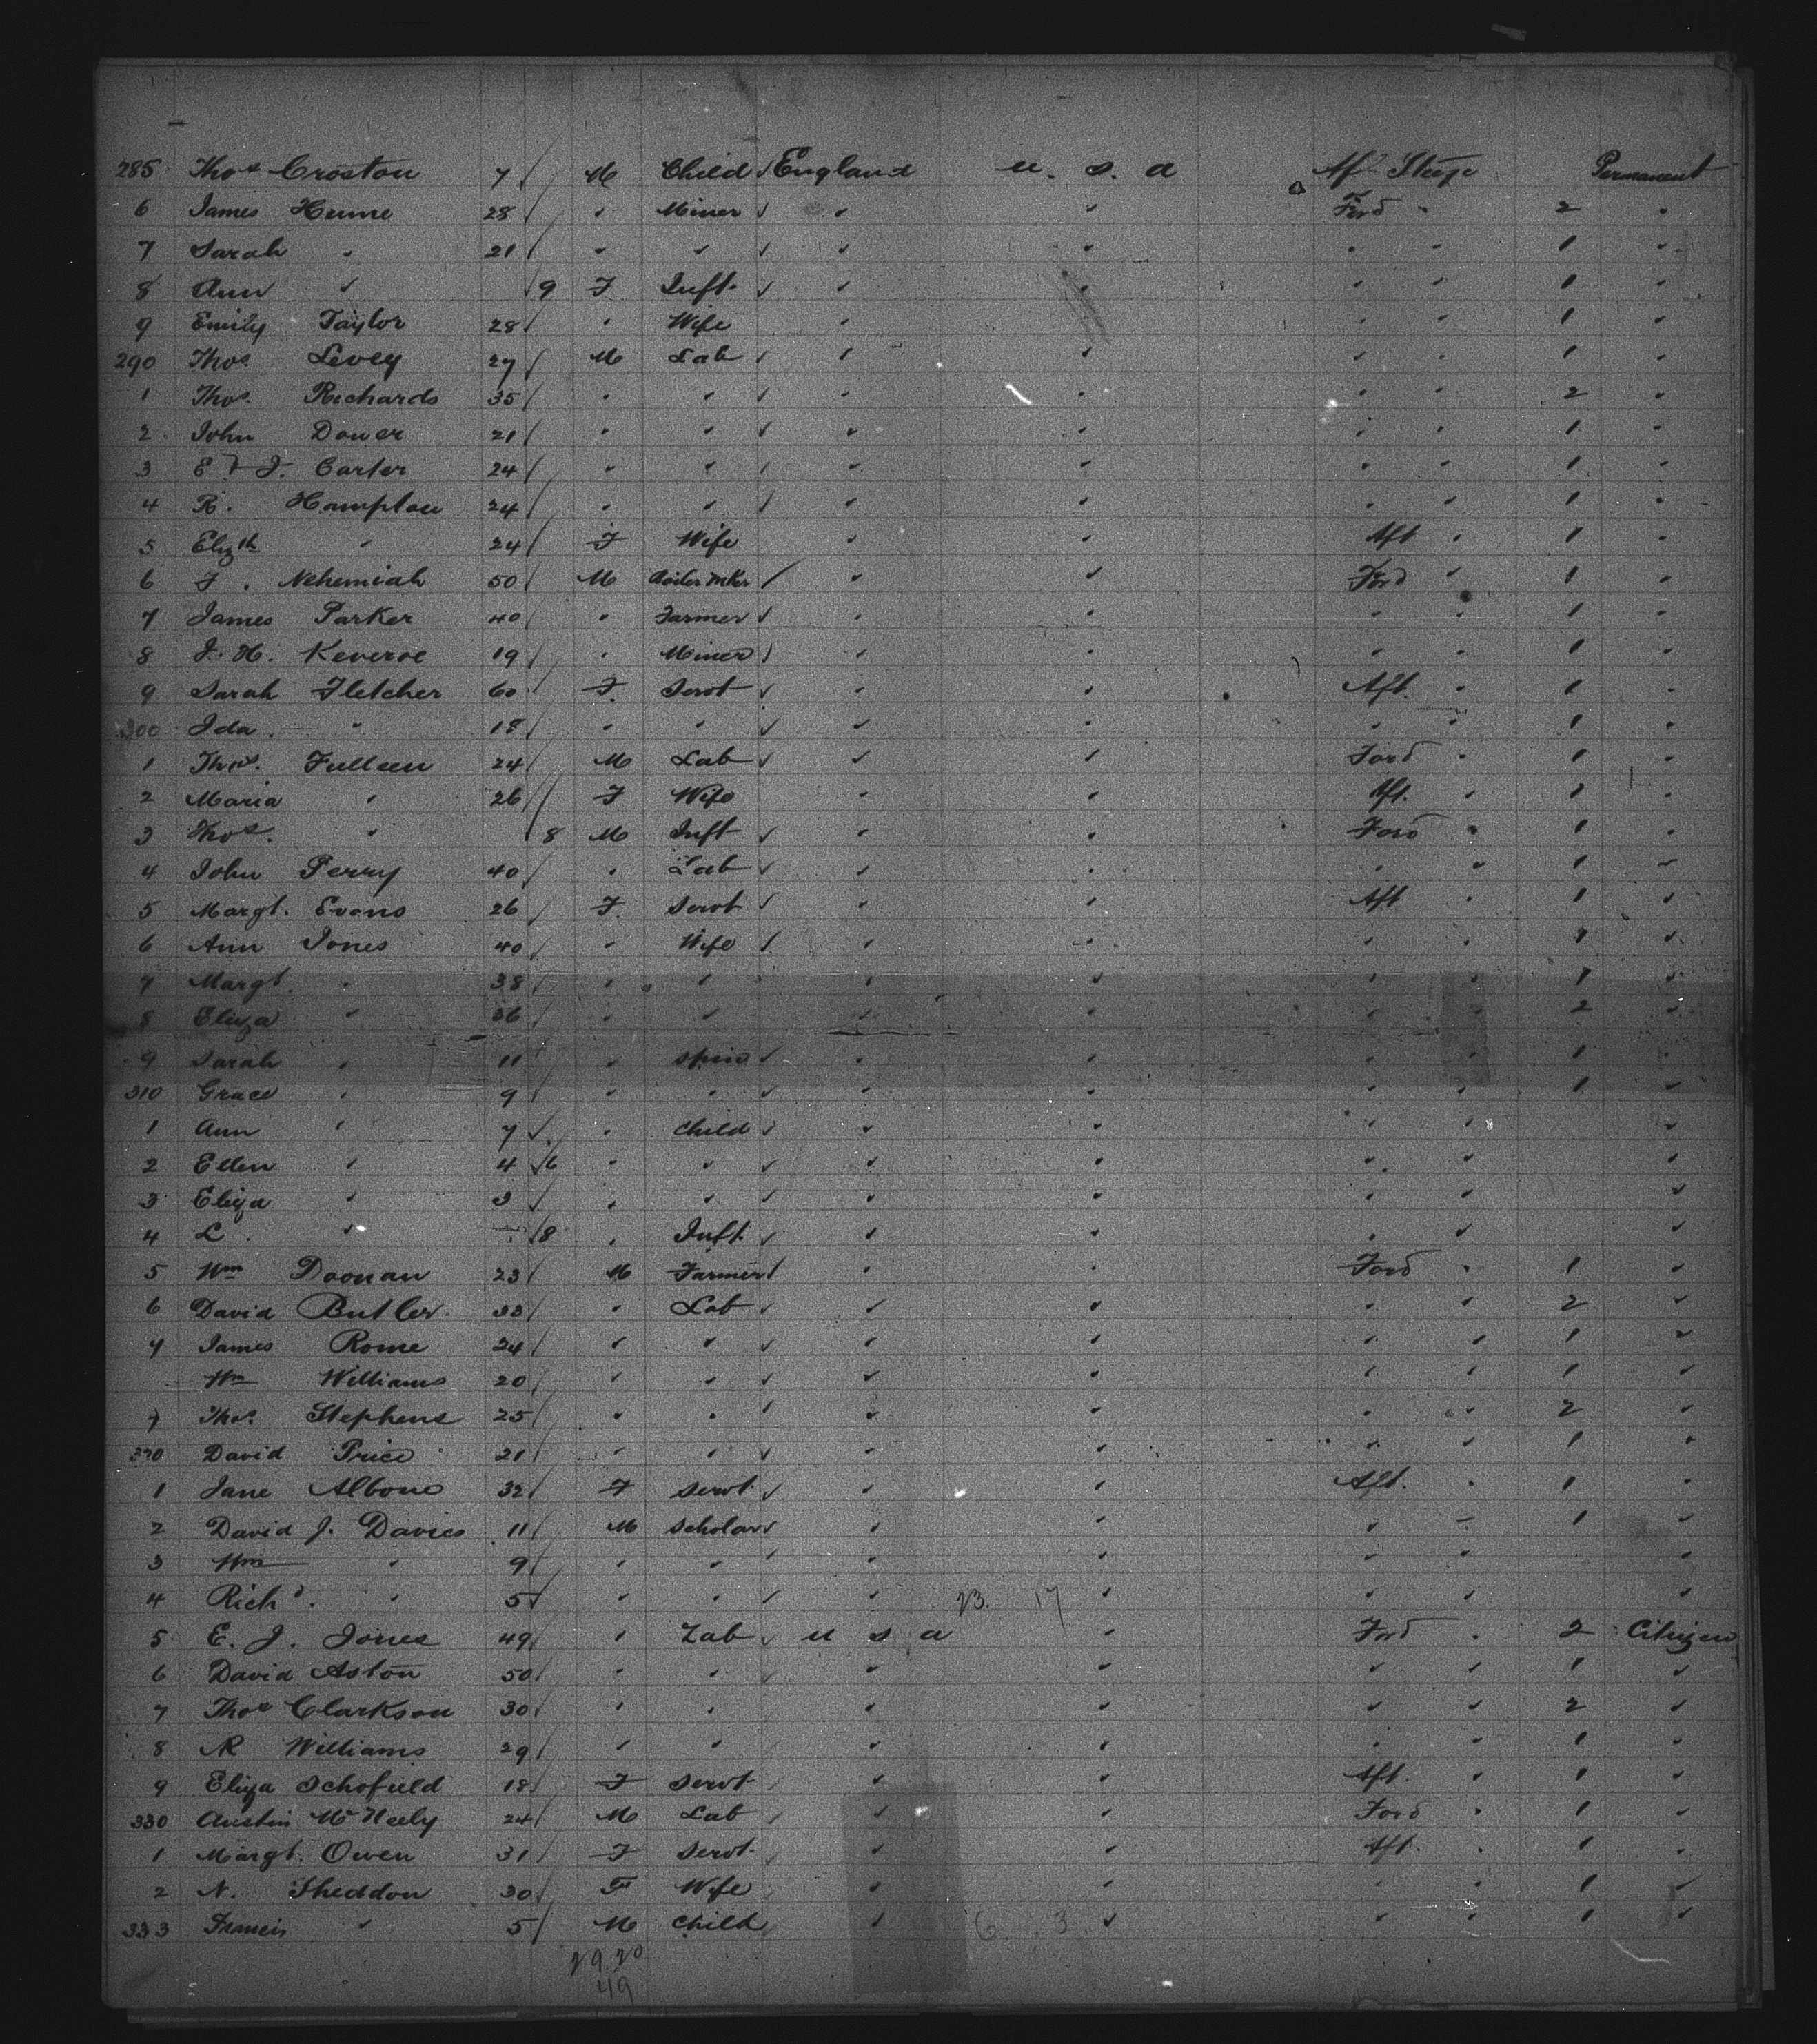 285 Thos Croston 7 M Child England u. s. a Af Steege Permanent
6 James Hume 28 " Miner " " Ford " 2 "
7 Sarah " 21 " " " " " " 1 "
8 Ann " 9 F Inft. " " " " 1 "
9 Emily Taylor 28 " Wife " " " 1 "
290 Thos. Levey 27 M Lab " " " " 1 "
1 Thos. Richards 35 " " " " " " 2 "
2 John Dower 21 " " " " " " 1 "
3 E & J. Carter 24 " " " " " " 1 "
4 R. Hampton 24 " " " " " " 1 "
5 Elizth " 24 F Wife " " Aft " 1 "
6 J. Nehemiah 50 M Boiler Mker " " Ford " 1 "
7 James Parker 40 " Farmer " " " " 1 "
8 J. H. Keveroe 19 " Miner " " " " 1 "
9 Sarah Fletcher 60 F Servt " " Aft. " 1 "
300 Ida. " 18 " " " " " " 1 "
1 Thos. Fulleen 24 M Lab " " Ford " 1 "
2 Maria " 26 F Wife " " Aft. " 1 "
3 Thos. " 8 M Inft " " Ford " 1 "
4 John Perry 40 " Lab " " " " 1 "
5 Margt. Evans 26 F Servt " " Aft " 1 "
6 Ann Jones 40 " Wife " " " " 1 "
7 Margt. " 38 " " " " " " 1 "
8 Eliza " 36 " " " " " " 2 "
9 Sarah " 11 " Spins " " " " 1 "
310 Grace " 9 " " " " " " 1 "
1 Ann " 7 " Child " " " " "
2 Ellen " 4 6 " " " " " " "
3 Eliza " 3 " " " " " " "
4 L. " 8 " Inft. " " " " "
5 Wm Doonan 23 M Farmer " " Ford " 1 "
6 David Butler. 33 " Lab " " " " 2 "
7 James Rome 24 " " " " " " 1 "
Wm Williams 20 " " " " " " 1 "
9 Thos. Stephens 25 " " " " " " 2 "
320 David Price 21 " " " " " " 1 "
1 Jane Albone 32 F Servt " " Aft. " 1 "
2 David J. Davies 11 M Scholar " " " " 1 "
3 Wm " 9 " " " " " " "
4 Richd. " 5 " " " 23. 17 " " " "
5 E. J. Jones 49 " Lab u s a " Ford " 2 Citizen
6 David Aston 50 " " " " " " 1 "
7 Thos Clarkson 30 " " " " " " 2 "
8 N Williams 29 " " " " " " 1 "
9 Eliza Schofield 18 F Servt " " Aft. " 1 "
330 Austin McNeely 24 M Lab " " Ford " 1 "
1 Margt. Owen 31 F Servt. " " Aft. " 1 "
2 N. Sheddon 30 F Wife " " " " 1 "
333 Francis " 5 M Child " 6. 3 " " " 1 "
29 20
49